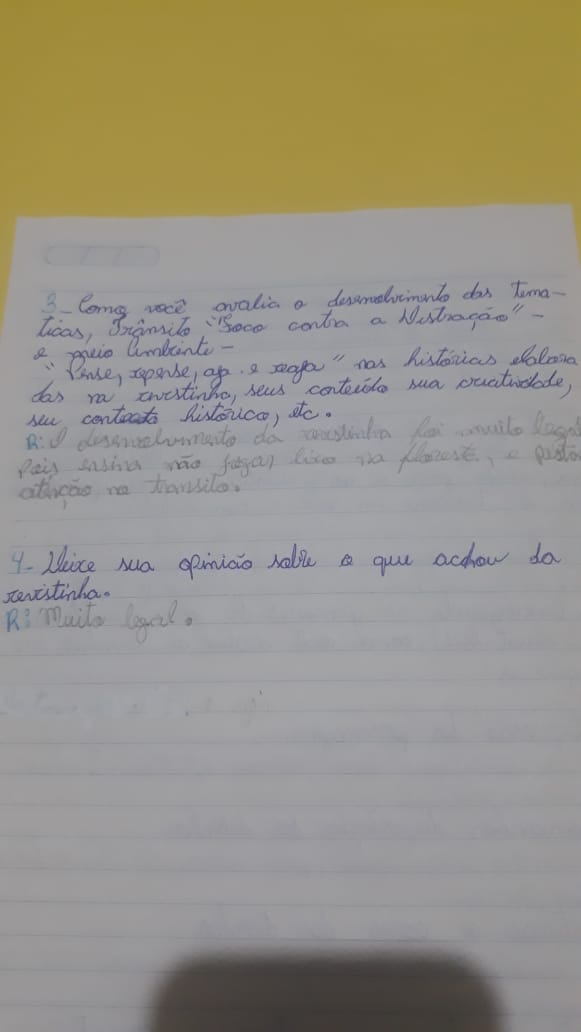 3- Como você avalia o desenvolvimento das tema-
ticas, Trânsito "Foco contra a Distração" -
e meio Ambiente -
"Pense, repense, aja e reaja" nas histórias elabora
das na revistinha, seus conteúdo sua criatividade,
seu contexto histórico, etc.
R: O desenvolvimento da revistinha foi muito legal
Pois ensina não fazer lixo na floresta, e
atenção no transito.
4- Deixe sua opinião sobre o que achou da
revistinha.
R: Muito legal.